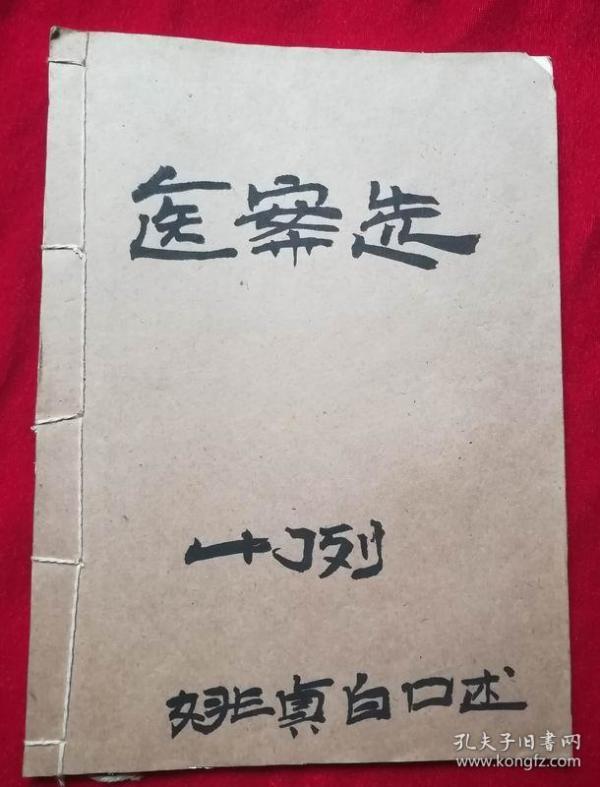 医案选
一十例
姚真白口述
孔夫子旧書网
www.kongfz.com